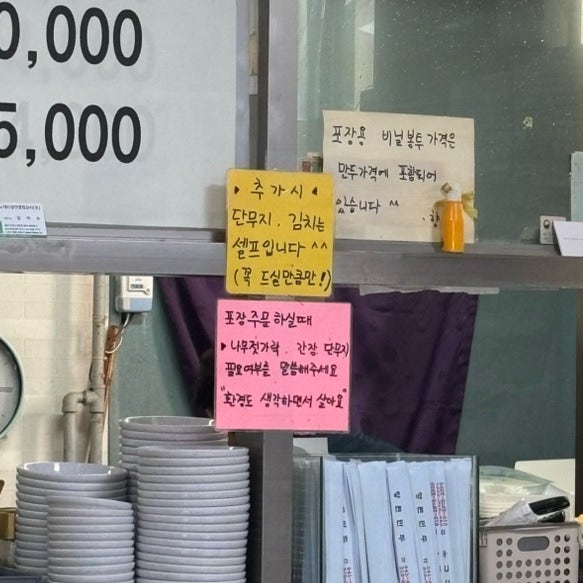 0,000
5,000
포장용 비닐봉투 가격은
만두가격에 포함되어
있습니다 ^^
▶ 추가시 ◀
단무지, 김치는
셀프입니다 ^^
(꼭 드실만큼만!)
포장주문 하실때
▶ 나무젓가락, 간장, 단무지
필요여부를 말씀해주세요
"환경도 생각하면서 살아요"